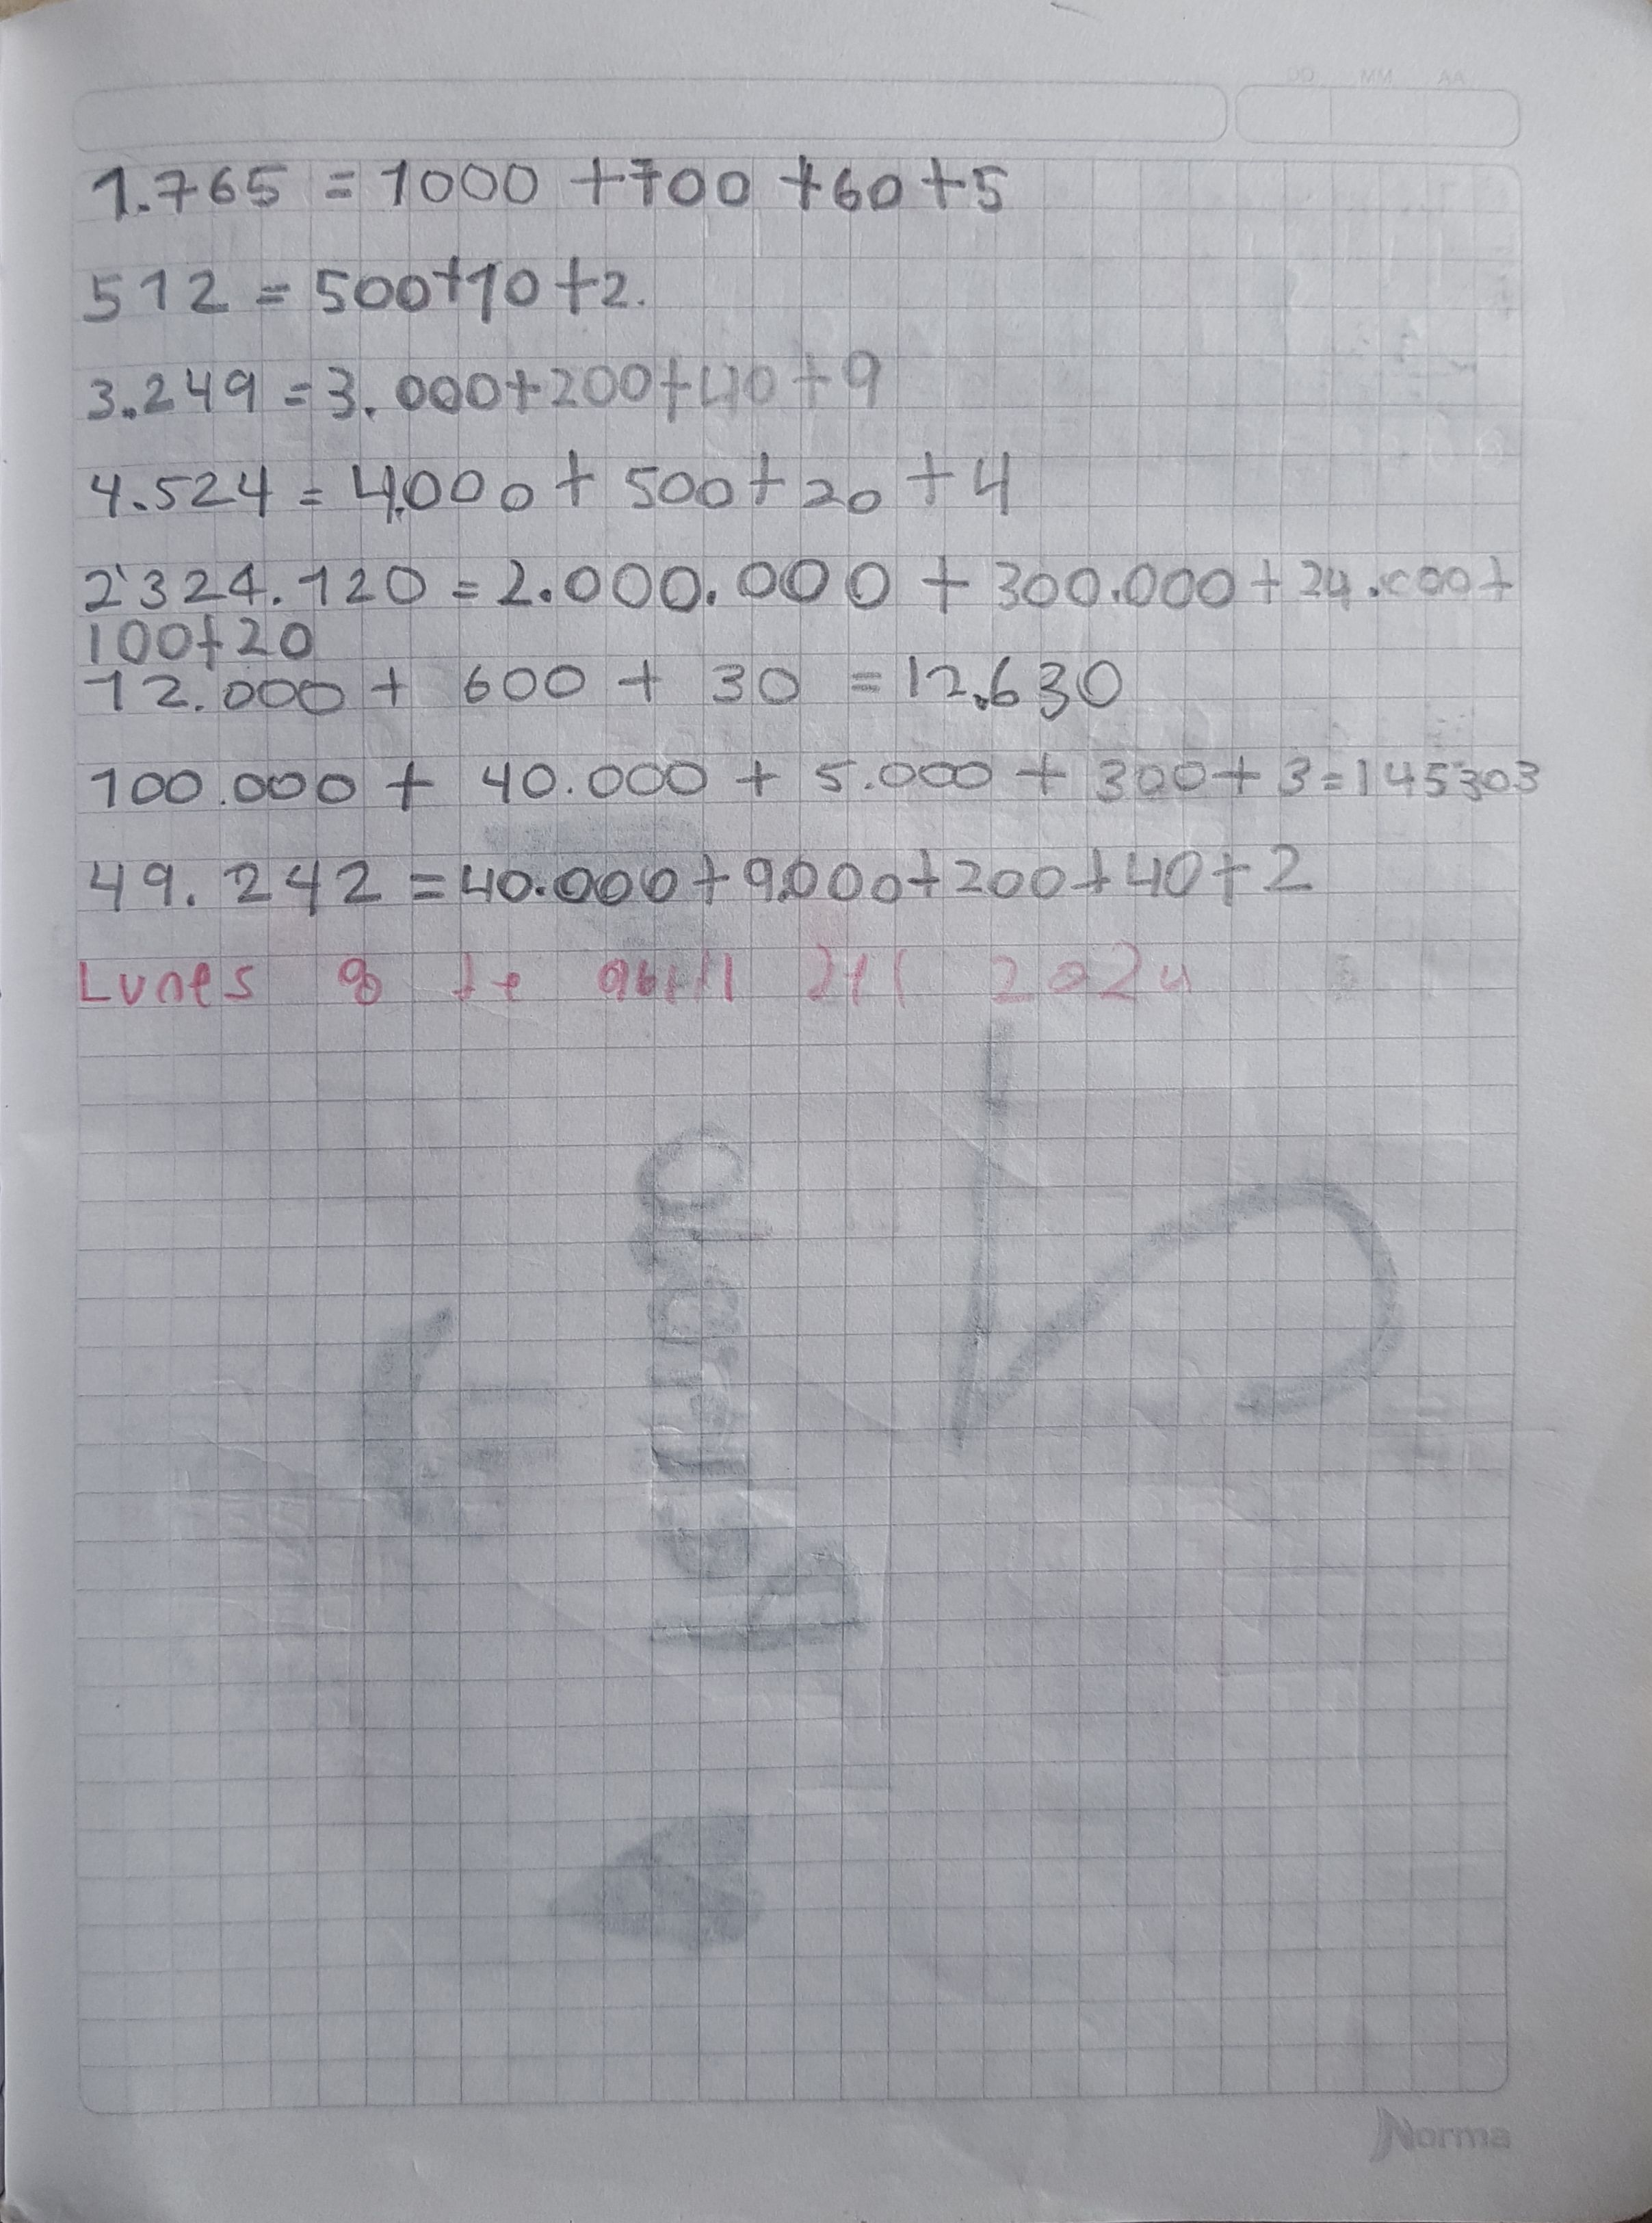 DD MM AA
1.765 = 1000 +700 +60+5
512 = 500+10+2.
3.249 =3.000+200+40+9
4.524 = 4.000+ 500+20 +4
2'324.120 =2.000.000 + 300.000+24.000+
100+20
12.000+ 600 + 30 =12.630
100.000+ 40.000 + 5.000 + 300+3=145303
49.242 =40.000+9.000+200+40+2
Lunes 8 de abril del 2024
Norma